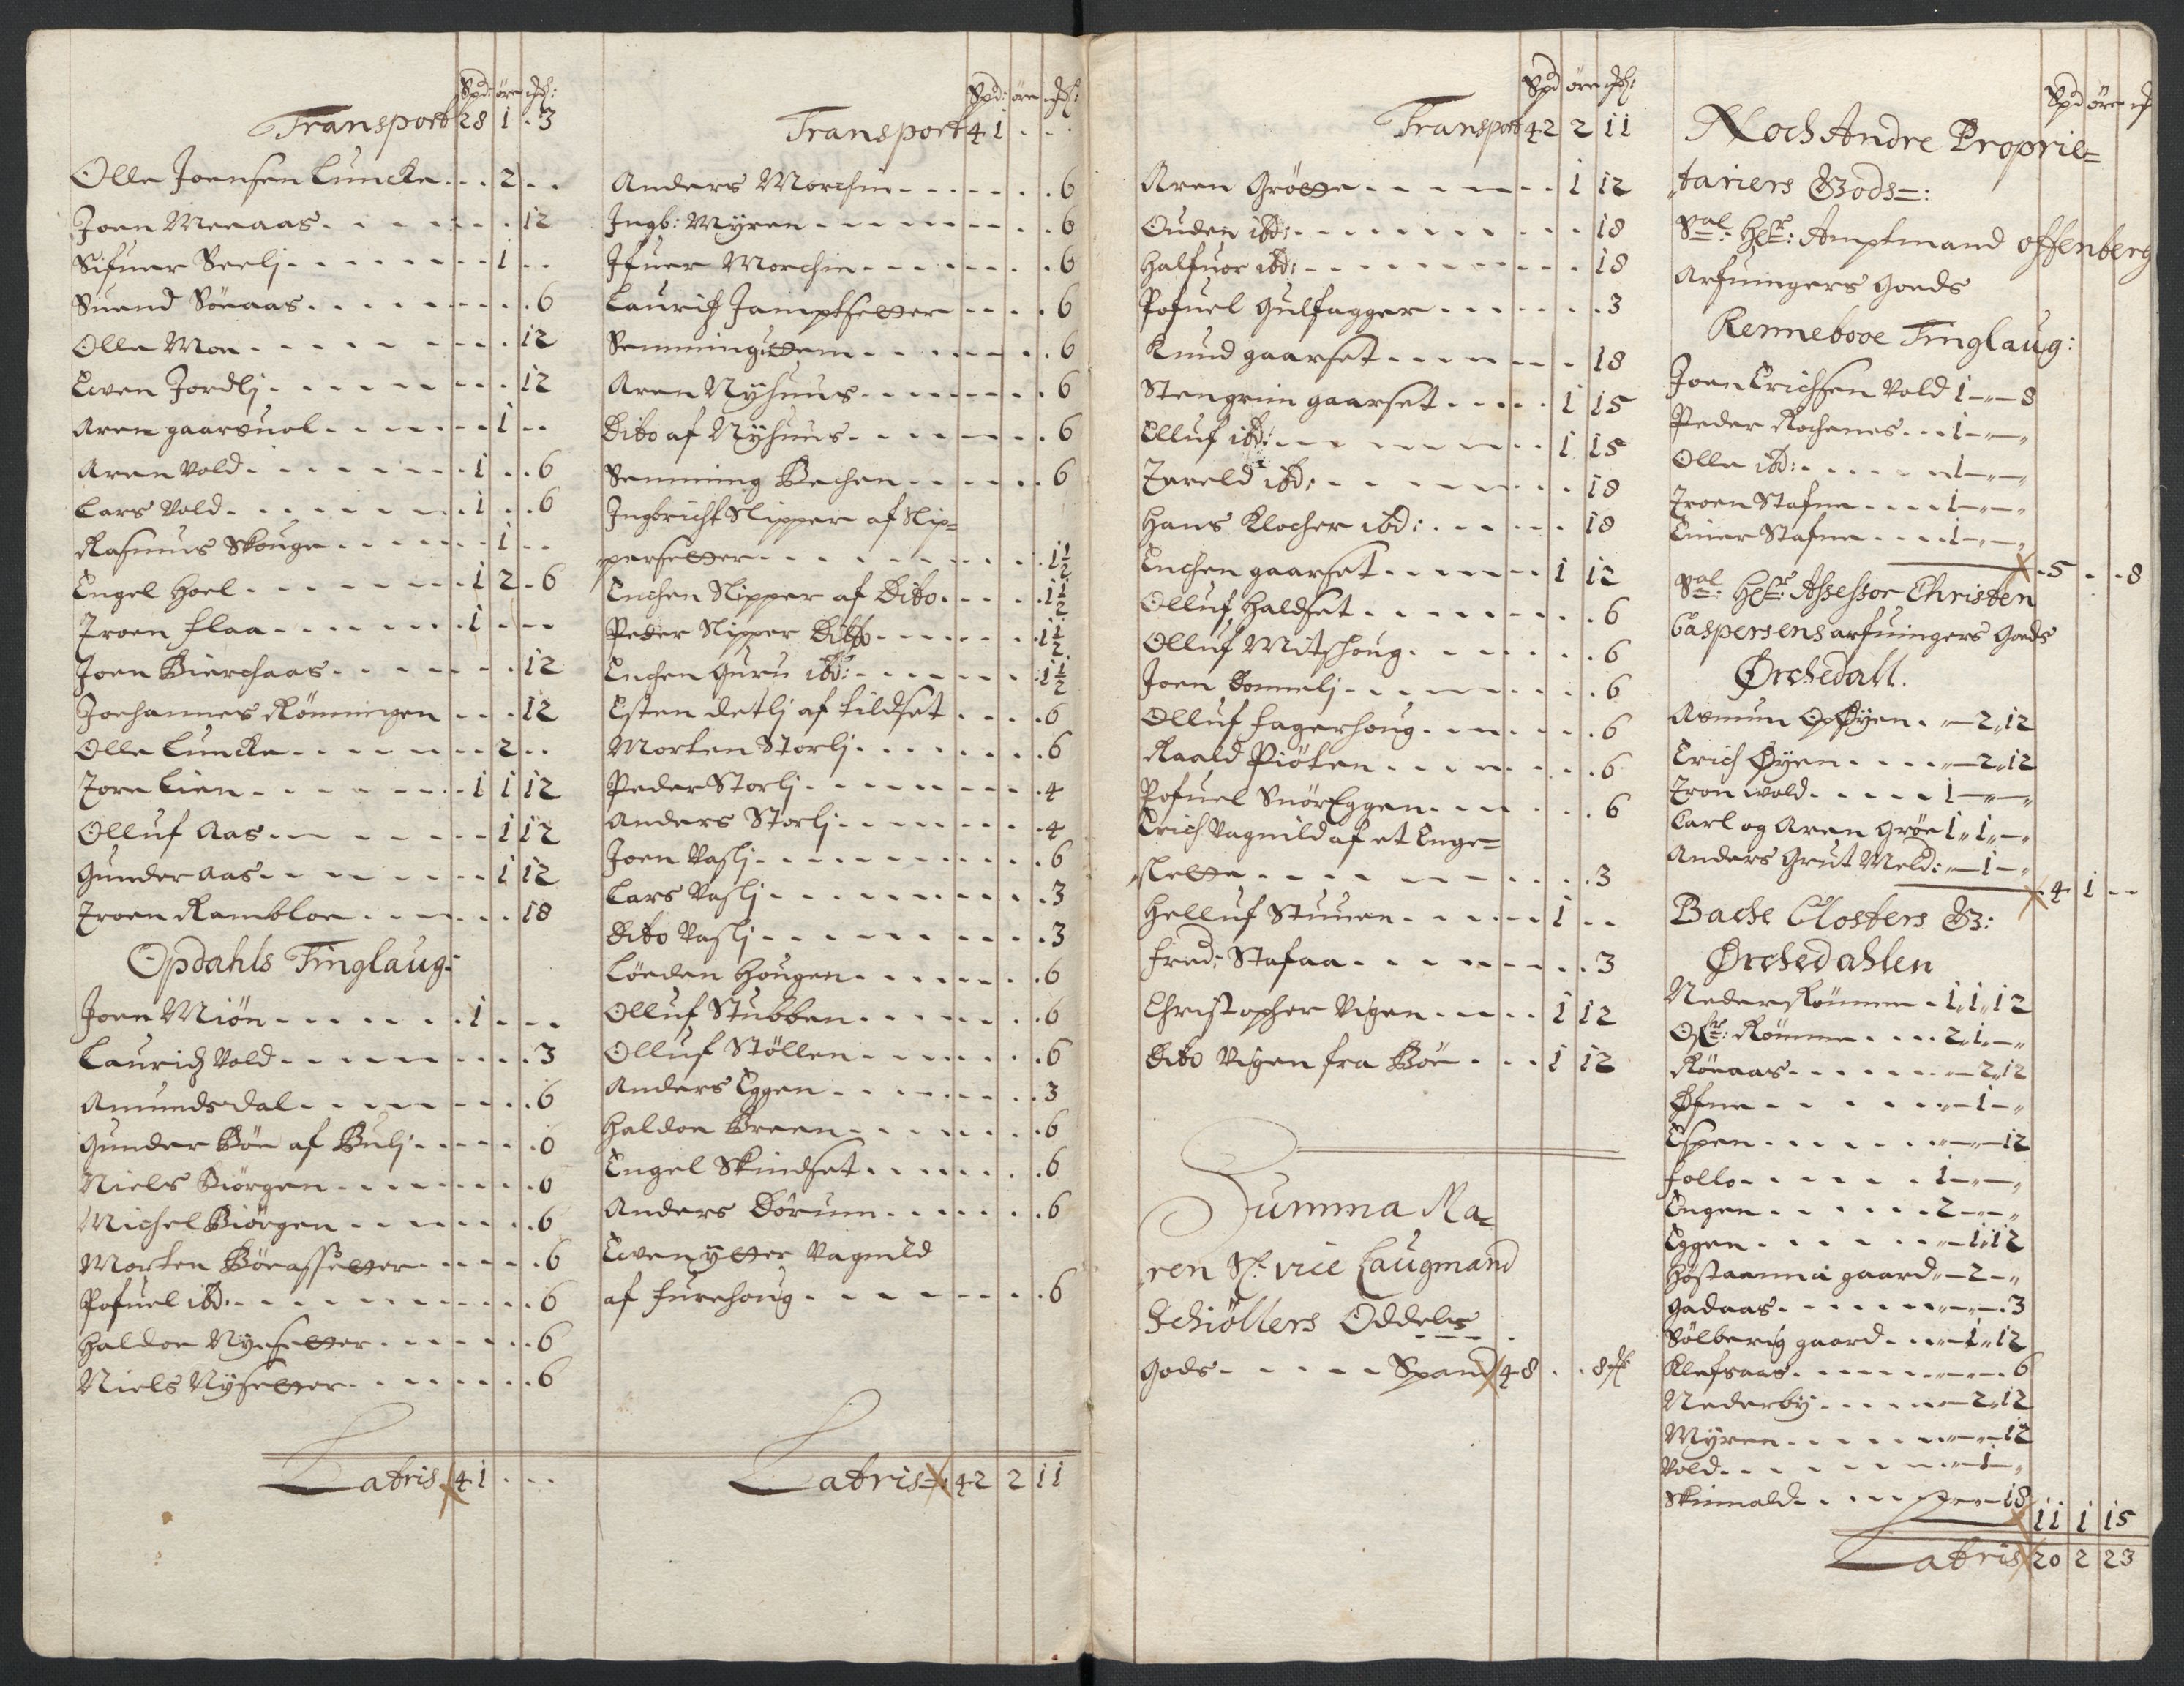 Spd: øre
Transport 28 1 . 3
Olle Joensen Luncke . . . 2 . .
Joen Meeaas . . . 12
Sifuer Seelj . . . 1 . .
Suend Söeaas . . . 6
Olle Moe . . . 12
Even Jordlj . . . 12
Aren gaarsuol . . . 1 . .
Aren Vold . . . 1 . . 6
Lars Vold . . . 1 . . 6
Rasmus Skouge . . . 1 . .
Engel Hoel . . . 1 2 . 6
Troen Flaa . . . 1 . . .
Joen Bierchaas . . . 12
Johannes Rönningen . . . 12
Olle Luncke . . . 2 . .
Tore Lien . . . 1 1 12
Olluf Aas . . . 1 12
Gunder Aas . . . 1 12
Troen Rambloe . . . 18
Opdahls Tinglaug:
Joen Miön . . . 1 . . .
Lauridz Vold . . . 3
Amundsdal . . . 6
Gunder Böe af Bulj . . . 6
Niels Biörgen . . . 6
Michel Biörgen . . . 6
Morten Böeassetter . . . 6
Pofuel ibd: . . . 6
Haldoe Nyesetter . . . 6
Niels Nysetter . . . 6
Latris 41 . . .
Spd: øre
Transport 41 . . .
Anders Morchin . . . 6
Ingb: Myren . . . 6
Ifuer Morchin . . . 6
Lauridz Jamptsetter . . . 6
Aren Nyhuus . . . 6
Dito af Nyhuus . . . 6
Semming Bechen . . . 6
Ingbricht Slipper af Slip=
persetter . . . 1½
Enchen Slipper af Dito . . . 1½
Peder Slipper Dito . . . 1½
Enchen Guru ibd: . . . 1½
Esten Detlj af Fildset . . . 6
Morten Storlj . . . 6
Peder Storlj . . . 4
Anders Storlj . . . 4
Joen Vaslj . . . 6
Lars Vaslj . . . 3
Dito Vaslj . . . 3
Löeden Hougen . . . 6
Olluf Stubben . . . 6
Olluf Stöllen . . . 6
Anders Eggen . . . 3
Haldoe Breen . . . 6
Engel Skindset . . . 6
Anders Dörum . . . 6
Even ytter Vagnild
af Furehoug . . . 6
Latris 42 2 11
Spd øre
Transport 42 2 11
Aren Grötte . . . 1 12
Ouden ibd: . . . 18
Halfuor ibd: . . . 18
Pofuel Gulfagger . . . 3
Knud gaarset . . . 18
Stengrim gaarset . . . 1 15
Olluf ibd: . . . 1 15
Tareld ibd: . . . 18
Hans Klocher ibd: . . . 18
Enchen gaarset . . . 1 12
Olluf Haldset . . . 6
Olluf Mitshoug . . . 6
Joen Donnelj . . . 6
Olluf Fagerhoug . . . 6
Raald Piöten . . . 6
Pofuel SnörEggen . . . 6
Erich Vagnild af et Enge=
slette . . . 3
Helluf Stuuen . . . 1 . .
Fred: Stafaa . . . 3
Christopher Vigen . . . 1 12
Dito Vigen fra Böe . . . 1 12
Summa Ma=
ren Sl: vice Laugmand
Schiöllers Oddels
Gods . . . Spand 48 . . 8
Spd øre
Noch Andre Proprie=
tariers Gods=:
Sal: Her: Amptmand Offenberg
Arfuingers Goeds
Rennebooe Tinglaug:
Joen Erichsen Vold 1 - „ - 8
Peder Rochenes . . . 1 - „ -
Olle ibd: . . . 1 - „ -
Troen Stafne . . . 1 - „ -
Einer Stafne . . . 1 - „ -
5 . . 8
Sal: Her: Assessor Christen
Caspersens arfuingers Goeds
Ørchedall.
Asmun OpØyen . „ - 2 „ 12
Erich Øyen . . . „ - 2 „ 12
Tron Wold . . . 1 - „ -
Carl og Aren Gröe 1 „ 1 „ -
Anders Grut Meld: „ - 1 - „
4 1 . .
Bache Closters G:
Ørchedahlen
Neder Römme . 1 „ 1 „ 12
Ofr: Römme . . . 2 „ 1 „ -
Röeaas . . . „ - 2 „ 12
Öfne . . . „ - 1 - „
Espen . . . „ - „ - 12
Follo . . . 1 - „ -
Engen . . . 2 - „ - „
Eggen . . . „ - 1 „ 12
Höstaanna gaard „ - 2 - „
Gadaas . . . „ - „ - . 3
Sölberig gaard . . . „ - 1 „ 12
Klefsaas . . . „ - „ - . 6
Nederby . . . „ - 2 „ 12
Myren . . . „ - „ - 12
Vold . . . „ - 1 - „
Skumold . . . „ - „ - 18
11 1 15
Latris 20 2 23